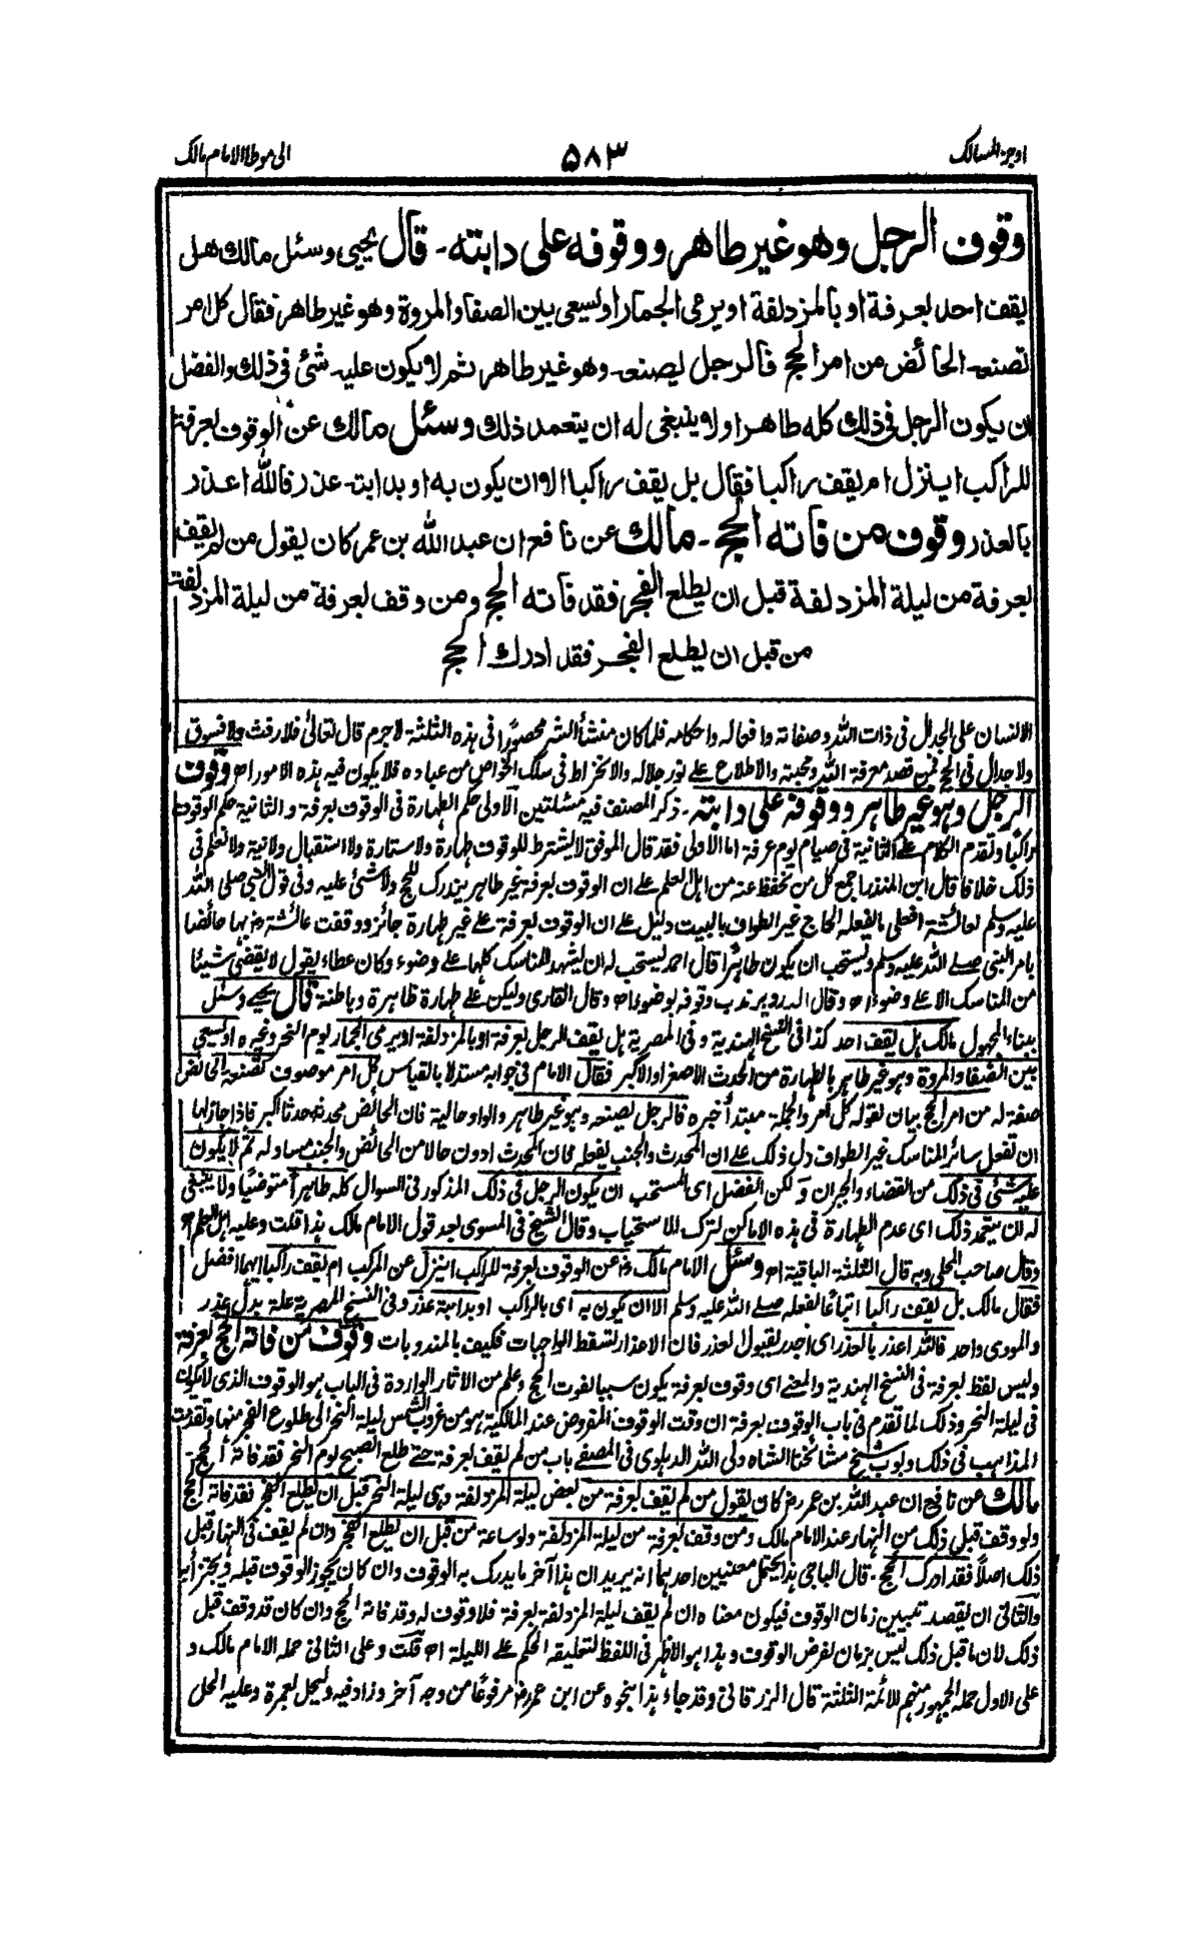 اوجز المسالك
٥٨٣
الى موطا الامام مالك
وقوف الرجل وهو غير طاهر ووقوفه على دابته۔ قال يحيى وسئل مالك هل
يقف احد بعرفة او بالمزدلفة او يرمى الجمار او يسعى بين الصفا والمروة وهو غير طاهر فقال كل امر
تصنعه الحائض من امر الحج فالرجل يصنعه وهو غير طاهر ثم لا يكون عليه شئ فى ذلك والفضل
ان يكون الرجل فى ذلك كله طاهرا ولا ينبغى له ان يتعمد ذلك وسئل مالك عن الوقوف بعرفة
للراكب اينزل ام يقف راكبا فقال بل يقف راكبا الا ان يكون به او بدابته عذر فالله اعذر
بالعذر وقوف من فاته الحج ۔ مالك عن نافع ان عبد الله بن عمر كان يقول من لم يقف
بعرفة من ليلة المزدلفة قبل ان يطلع الفجر فقد فاته الحج ومن وقف بعرفة من ليلة المزدلفة
من قبل ان يطلع الفجر فقد ادرك الحج
الانسان على الجدل فى ذات الله وصفاته وافعاله واحكامه فلما كان منشأ الشر محصورا فى هذه الثلثة لاجرم قال تعالى فلا رفث ولا فسوق
ولا جدال فى الحج فمن قصد معرفة الله ومحبته والاطلاع على نور جلاله والانخراط فى سلك الخواص من عباده فلا يكون فيه هذه الامور اھ وقوف
الرجل وهو غير طاهر ووقوفه على دابته۔ ذكر المصنف فيه مسئلتين الاولى حكم الطهارة فى الوقوف بعرفة والثانية حكم الوقوف
راكبا وتقدم الكلام على الثانية فى صيام يوم عرفة اما الاولى فقد قال الموفق لا يشترط للوقوف طهارة ولا ستارة ولا استقبال ولا نية ولا نعلم فى
ذلك خلافا قال ابن المنذر اجمع كل من نحفظ عنه من اهل العلم على ان الوقوف بعرفة غير طاهر يدرك للحج ولا شئ عليه وفى قول النبى صلى الله
عليه وسلم لعائشة افعلى ما يفعله الحاج غير الطواف بالبيت دليل على ان الوقوف بعرفة على غير طهارة جائز ووقفت عائشة رض بها حائضا
بامر النبى صلى الله عليه وسلم ويستحب ان يكون طاهرا قال احمد يستحب له ان يشهد المناسك كلها على وضوء وكان عطاء يقول لا يقضى شيئا
من المناسك الا على وضوء اھ وقال الدردير ندب وقوفه بوضوء اھ وقال القارى وليكن على طهارة ظاهرة وباطنة قال يحيى وسئل
ببناء المجهول مالك هل يقف احد كذا فى النسخ الهندية وفى المصرية هل يقف الرجل بعرفة او بالمزدلفة او يرمى الجمار يوم النحر وغيره او يسعى
بين الصفا والمروة وهو غير طاهر بالطهارة من الحدث الاصغر او الاكبر فقال الامام فى جوابه مستدلا بالقياس كل امر موصوف تصنعه الحائض
صفة له من امر الحج بيان لقوله كل امر والجملة مبتدأ خبره فالرجل يصنعه وهو غير طاهر والواو حالية فان الحائض محدثة حدثا اكبر فاذا جاز لها
ان تفعل سائر المناسك غير الطواف دل ذلك على ان المحدث والجنب يفعله فان المحدث ادون حالا من الحائض والجنب مساو له ثم لا يكون
عليه شئ فى ذلك من القضاء والجبران ولكن الفضل اى المستحب ان يكون الرجل فى ذلك المذكور فى السوال كله طاهرا متوضيا ولا ينبغى
له ان يتعمد ذلك اى عدم الطهارة فى هذه الاماكن لترك الاستحباب وقال الشيخ فى المسوى بعد قول الامام مالك هذا قلت وعليه اهل العلم اھ
وقال صاحب المحلى وبه قال الثلثة الباقية اھ وسئل الامام مالك رض عن الوقوف بعرفة للراكب اينزل عن المركب ام يقف راكبا ايهما افضل
فقال مالك بل يقف راكبا اتباعا لفعله صلى الله عليه وسلم الا ان يكون به اى بالراكب او بدابته عذر وفى النسخ المصرية علة بدل عذر
والمودى واحد فالله اعذر بالعذر اى اجدر بقبول العذر فان الاعذار تسقط الواجبات فكيف بالمندوبات وقوف من فاته الحج بعرفة
وليس لفظ بعرفة فى النسخ الهندية والمعنى اى وقوف بعرفة يكون سببا لفوت الحج وعلم من الآثار الواردة فى الباب هو الوقوف الذى لا يكون
فى ليلة النحر وذلك لما تقدم فى باب الوقوف بعرفة ان وقت الوقوف المفروض عند المالكية هو من غروب الشمس ليلة النحر الى طلوع الفجر منها وتقدمت
المذاهب فى ذلك وبوب شيخ مشائخنا الشاه ولى الله الدهلوى فى المصفى باب من لم يقف بعرفة حتى طلع الصبح يوم النحر فقد فاته الحج۔
مالك عن نافع ان عبد الله بن عمر رض كان يقول من لم يقف بعرفة من بعض ليلة المزدلفة وهى ليلة النحر قبل ان يطلع الفجر فقد فاته الحج
ولو وقف قبل ذلك من النهار عند الامام مالك ومن وقف بعرفة من ليلة المزدلفة ولو ساعة من قبل ان يطلع الفجر وان لم يقف فى النهار قبل
ذلك اصلا فقد ادرك الحج ۔ قال الباجى هذا يحتمل معنيين احدهما انه يريد ان هذا آخر ما يدرك به الوقوف وان كان يجوز الوقوف قبله ويجتزأ به
والثانى ان يقصد تبيين زمان الوقوف فيكون معناه ان لم يقف ليلة المزدلفة بعرفة فلا وقوف له وقد فاته الحج وان كان قد وقف قبل
ذلك لان ما قبل ذلك ليس بزمان لفرض الوقوف وهذا هو الاظهر فى اللفظ لتعليقه الحكم على الليلة اھ قلت وعلى الثانى حمله الامام مالك و
على الاول حمله الجمهور منهم الائمة الثلثة قال الزرقانى وقد جاء هذا بنحوه عن ابن عمر رض مرفوعا من وجه آخر وزاد فيه وليحل بعمرة وعليه الحل